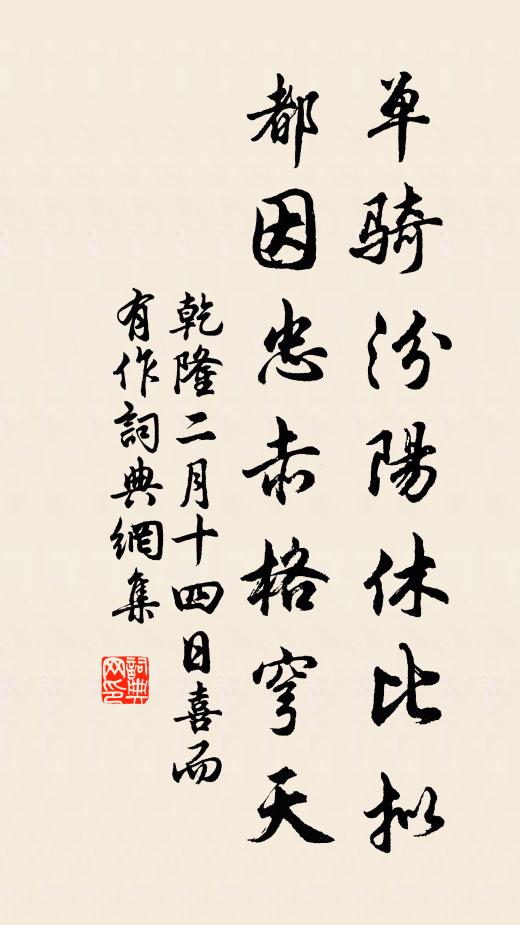 单骑汾陽休比拟
都因忠赤格穹天
乾隆二月十四日喜而
有作詞典網集
詞典网印